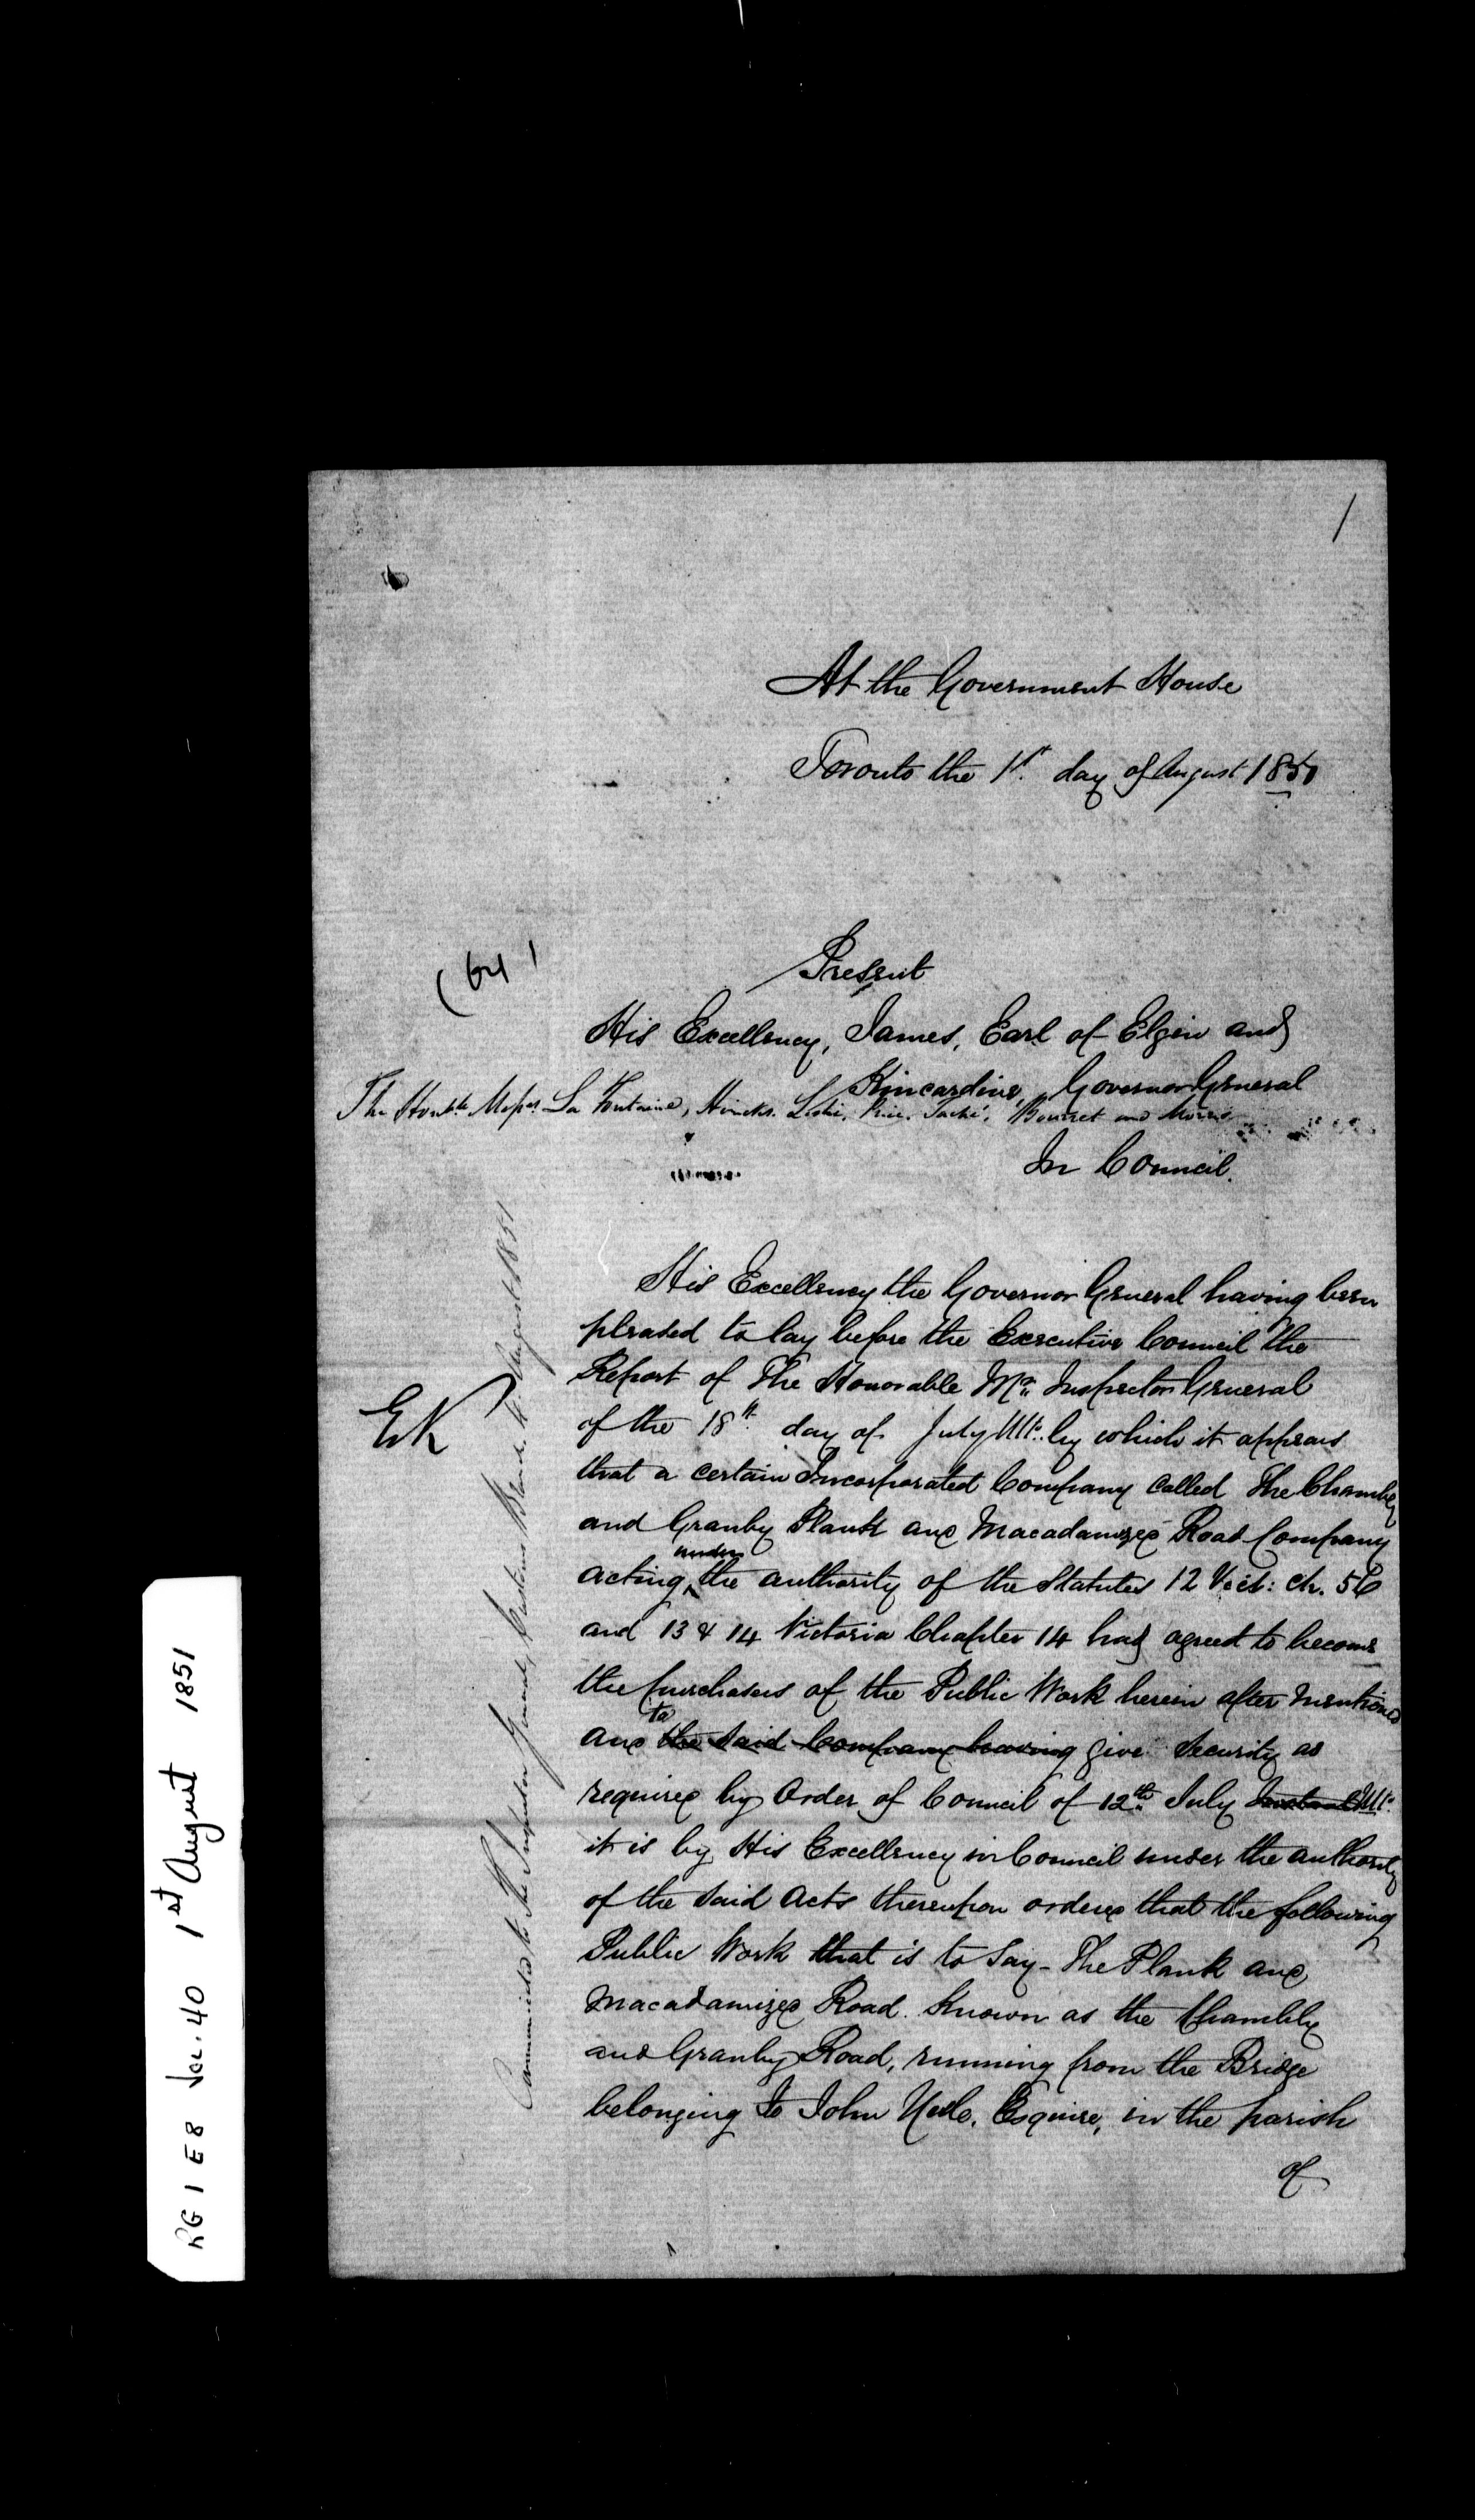 1
At the Government House
Toronto the 1st day of August 1851
(64)
Present
His Excellency, James, Earl of Elgin and
Kincardine, Governor General
The Honble Messrs La Fontaine, Hincks, Leslie, Price, Taché, Bourret and Morris
In Council.
His Excellency the Governor General having been
pleased to lay before the Executive Council the
Report of The Honorable Mr. Inspector General
of the 18th day of July Ult. by which it appears
that a certain Incorporated Company called The Chambly
and Granby Plank and Macadamized Road Company
acting under the authority of the Statutes 12 Vict: ch. 56
and 13 & 14 Victoria Chapter 14 had agreed to become
the purchasers of the Public Work herein after mentioned
and to the said Company having give security as
required by Order of Council of 12th July Instant Ult.
it is by His Excellency in Council under the authority
of the said Acts thereupon ordered that the following
Public Work that is to say - The Plank and
Macadamized Road known as the Chambly
and Granby Road, running from the Bridge
belonging to John Yule, Esquire, in the parish
of
EK
Communicated to the Inspector General, Customs Branch August 1851
RG 1 E 8 Vol. 40 1st August 1851